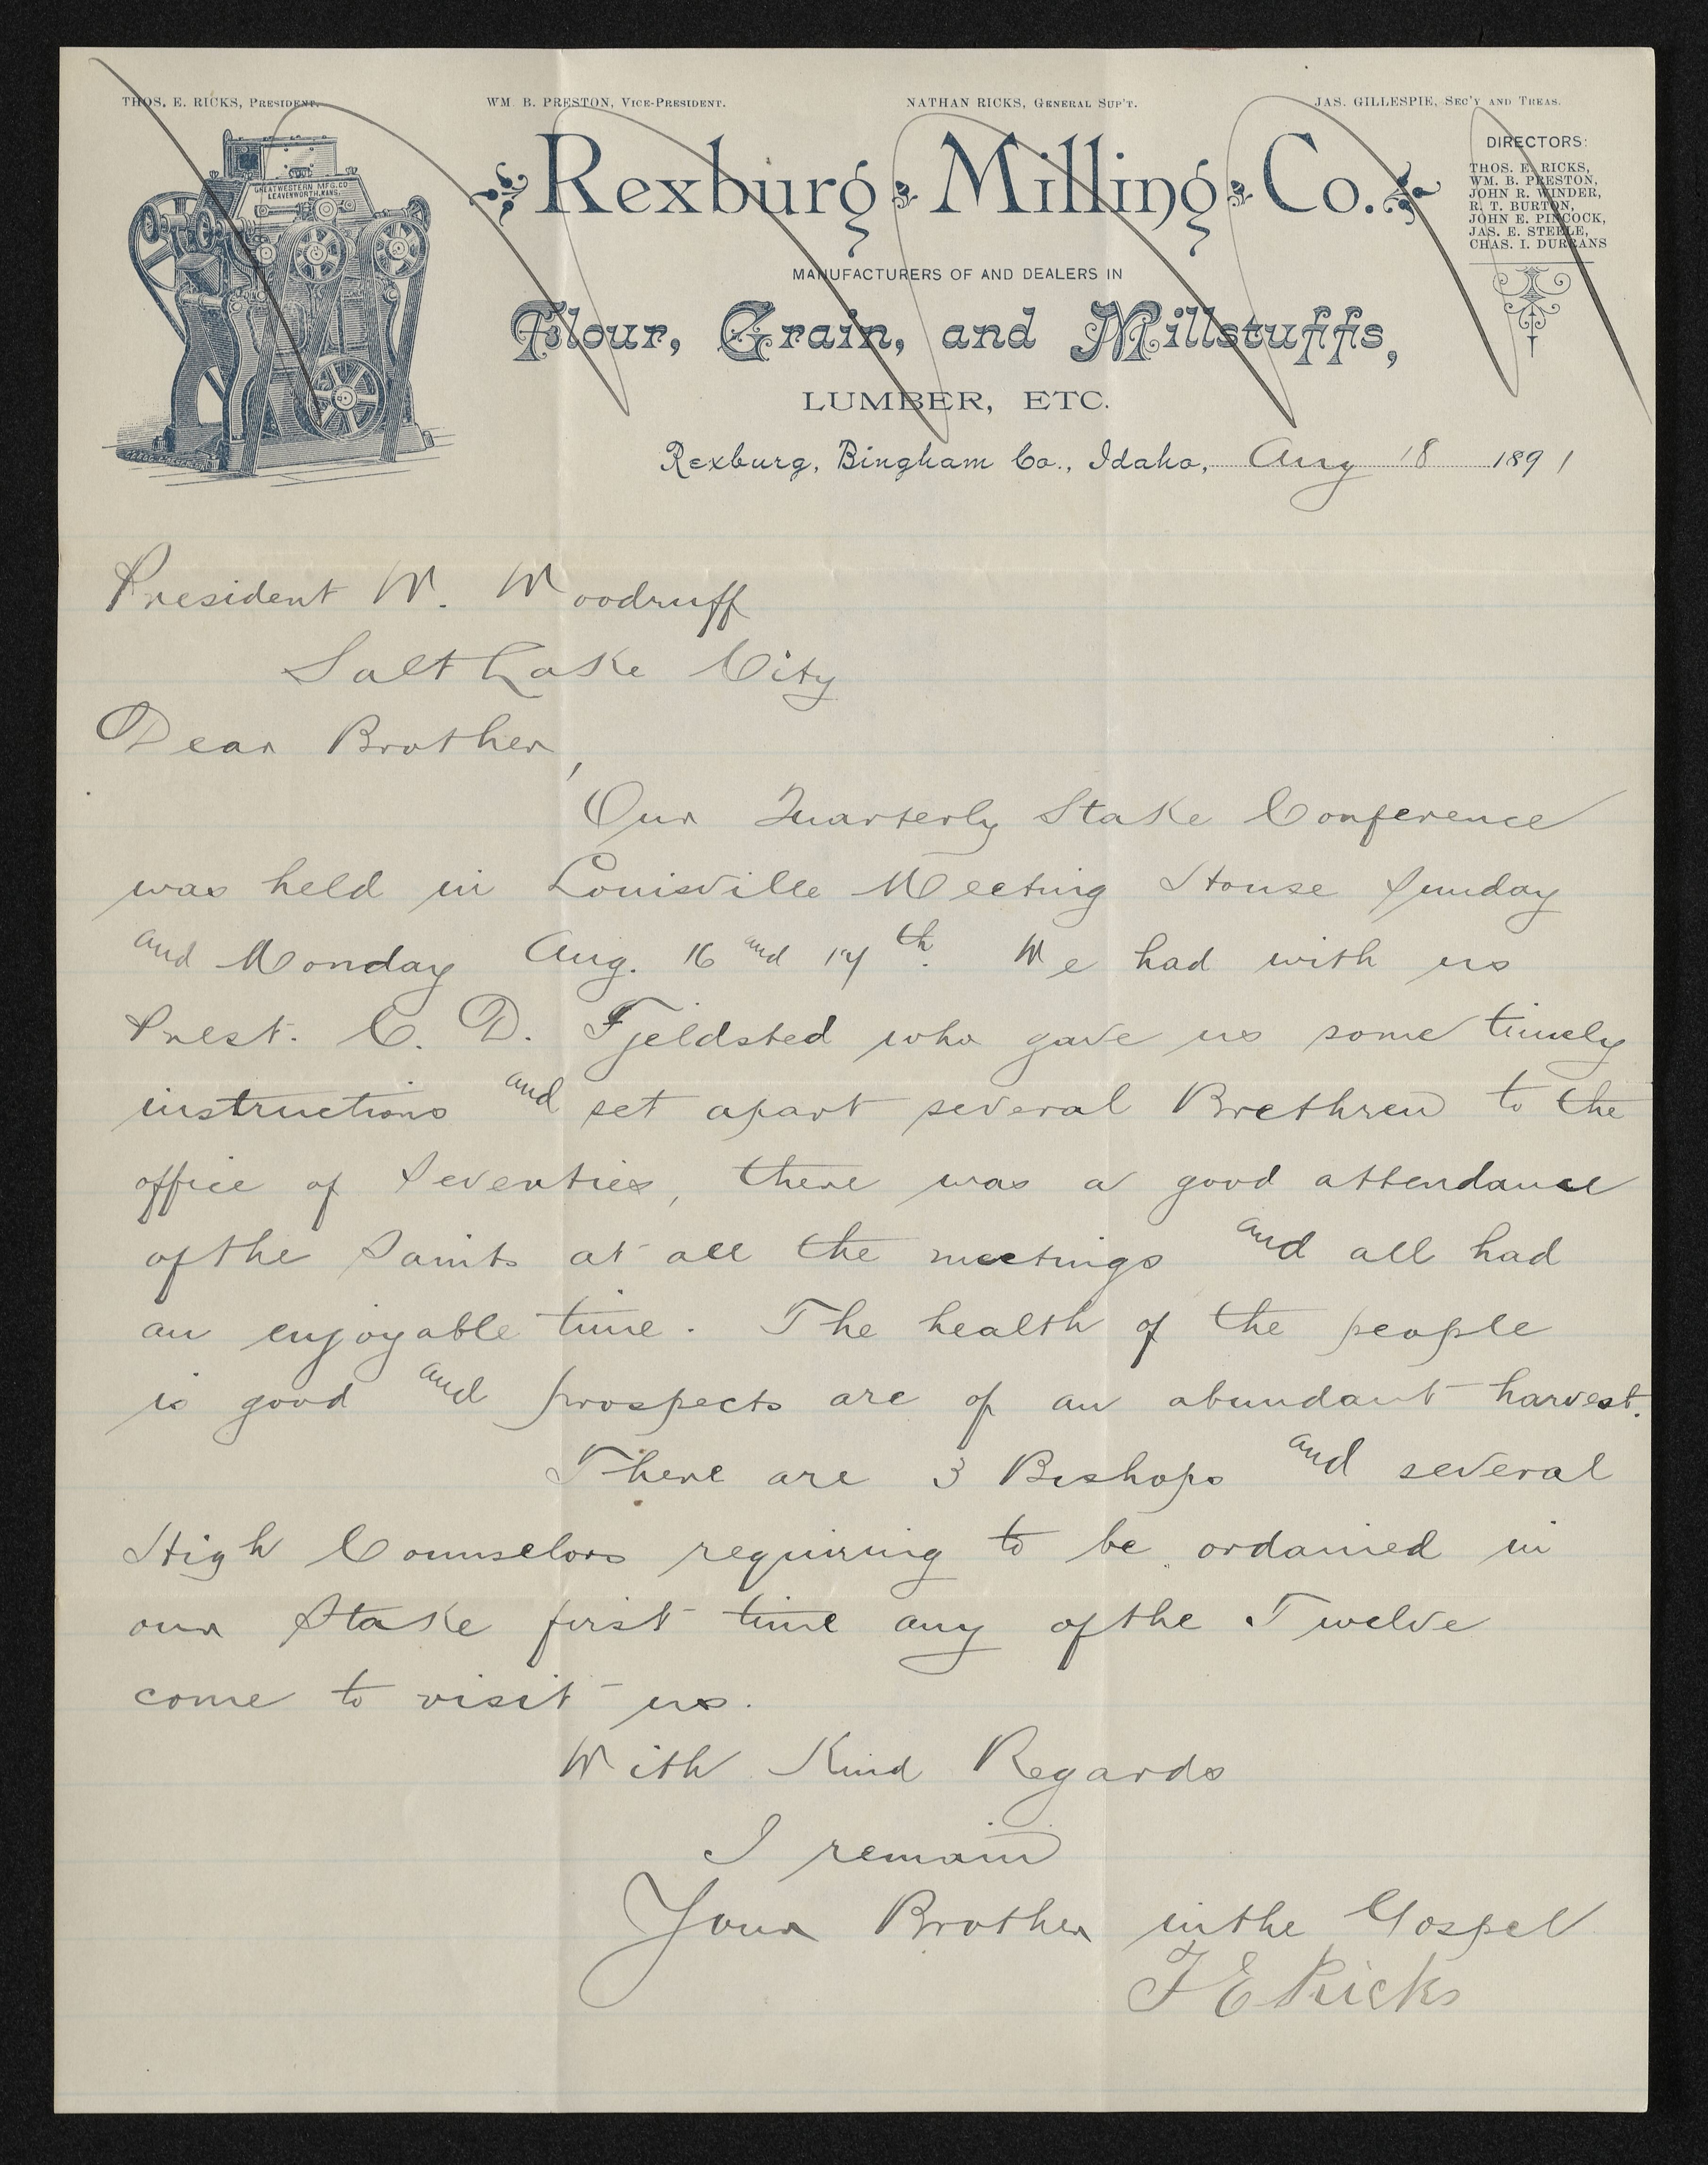 THOS. E. RICKS, PRESIDENT. WM. B. PRESTON, VICE-PRESIDENT. NATHAN RICKS, GENERAL SUP'T. JAS. GILLESPIE, SEC'Y AND TREAS.
GREAT WESTERN MFG. CO
LEAVENWORTH, KANS.
Rexburg Milling Co.
DIRECTORS:
THOS. E. RICKS,
WM. B. PRESTON,
JOHN R. WINDER,
R. T. BURTON,
JOHN E. PINCOCK,
JAS. E. STEELE,
CHAS. I. DURRANS
MANUFACTURERS OF AND DEALERS IN
Flour, Grain, and Millstuffs,
LUMBER, ETC.
Rexburg, Bingham Co., Idaho, Aug 18 1891
President W. Woodruff
Salt Lake City
Dear Brother,
Our Quarterly Stake Conference
was held in Louisville Meeting House Sunday
and Monday Aug. 16 and 17th. We had with us
Prest. C. D. Fjeldsted who gave us some timely
instructions and set apart several Brethren to the
office of Seventies, there was a good attendance
of the Saints at all the meetings and all had
an enjoyable time. The health of the people
is good and prospects are of an abundant harvest.
There are 3 Bishops and several
High Counselors requiring to be ordained in
our Stake first time any of the Twelve
come to visit us.
With Kind Regards
I remain
Your Brother in the Gospel
T E Ricks